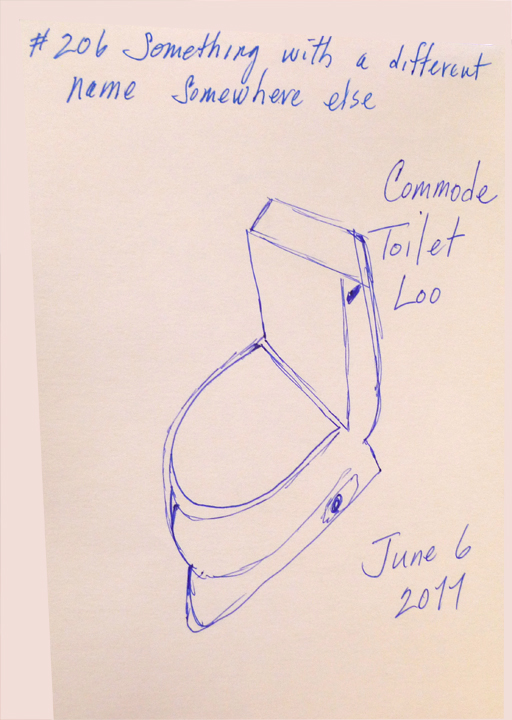 # 206 Something with a different
name Somewhere else
Commode
Toilet
Loo
June 6
2011